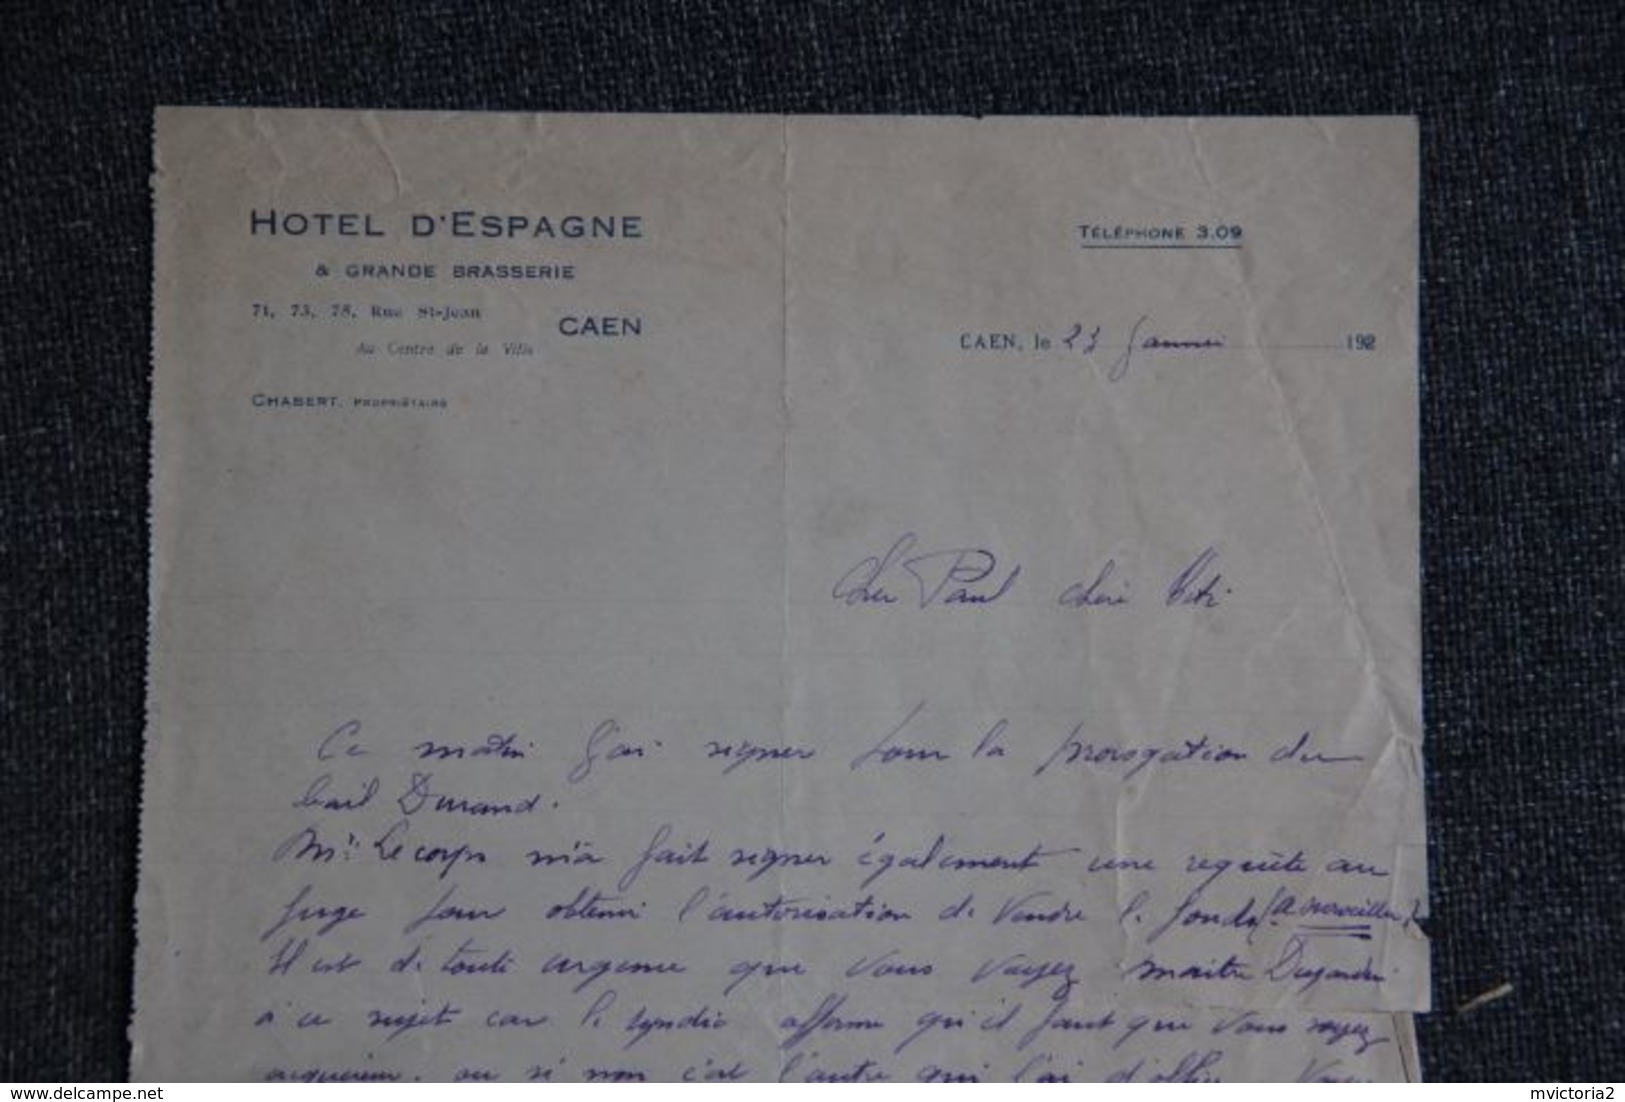 HOTEL D'ESPAGNE
& GRANDE BRASSERIE
71, 73, 75, Rue St-Jean
CAEN
Au Centre de la Ville
CHABERT, PROPRIÉTAIRE
TÉLÉPHONE 3.09
CAEN, le 23 Janvier 192
Cher Paul chère
Ce matin j'ai signer pour la prorogation du
bail Durand.
Mr Lecorps m'a fait signer également une requète au
juge pour obtenir l'autorisation de vendre le fonds (à surveiller)
Il est de toute urgence que vous voyez maitre Dujardin
à ce sujet car le syndic affirme qu'il faut que vous soyez
acquéreur. ou si non c'est l'autre qui l'ai d'office. Vous
delcampe.net
mvictoria2